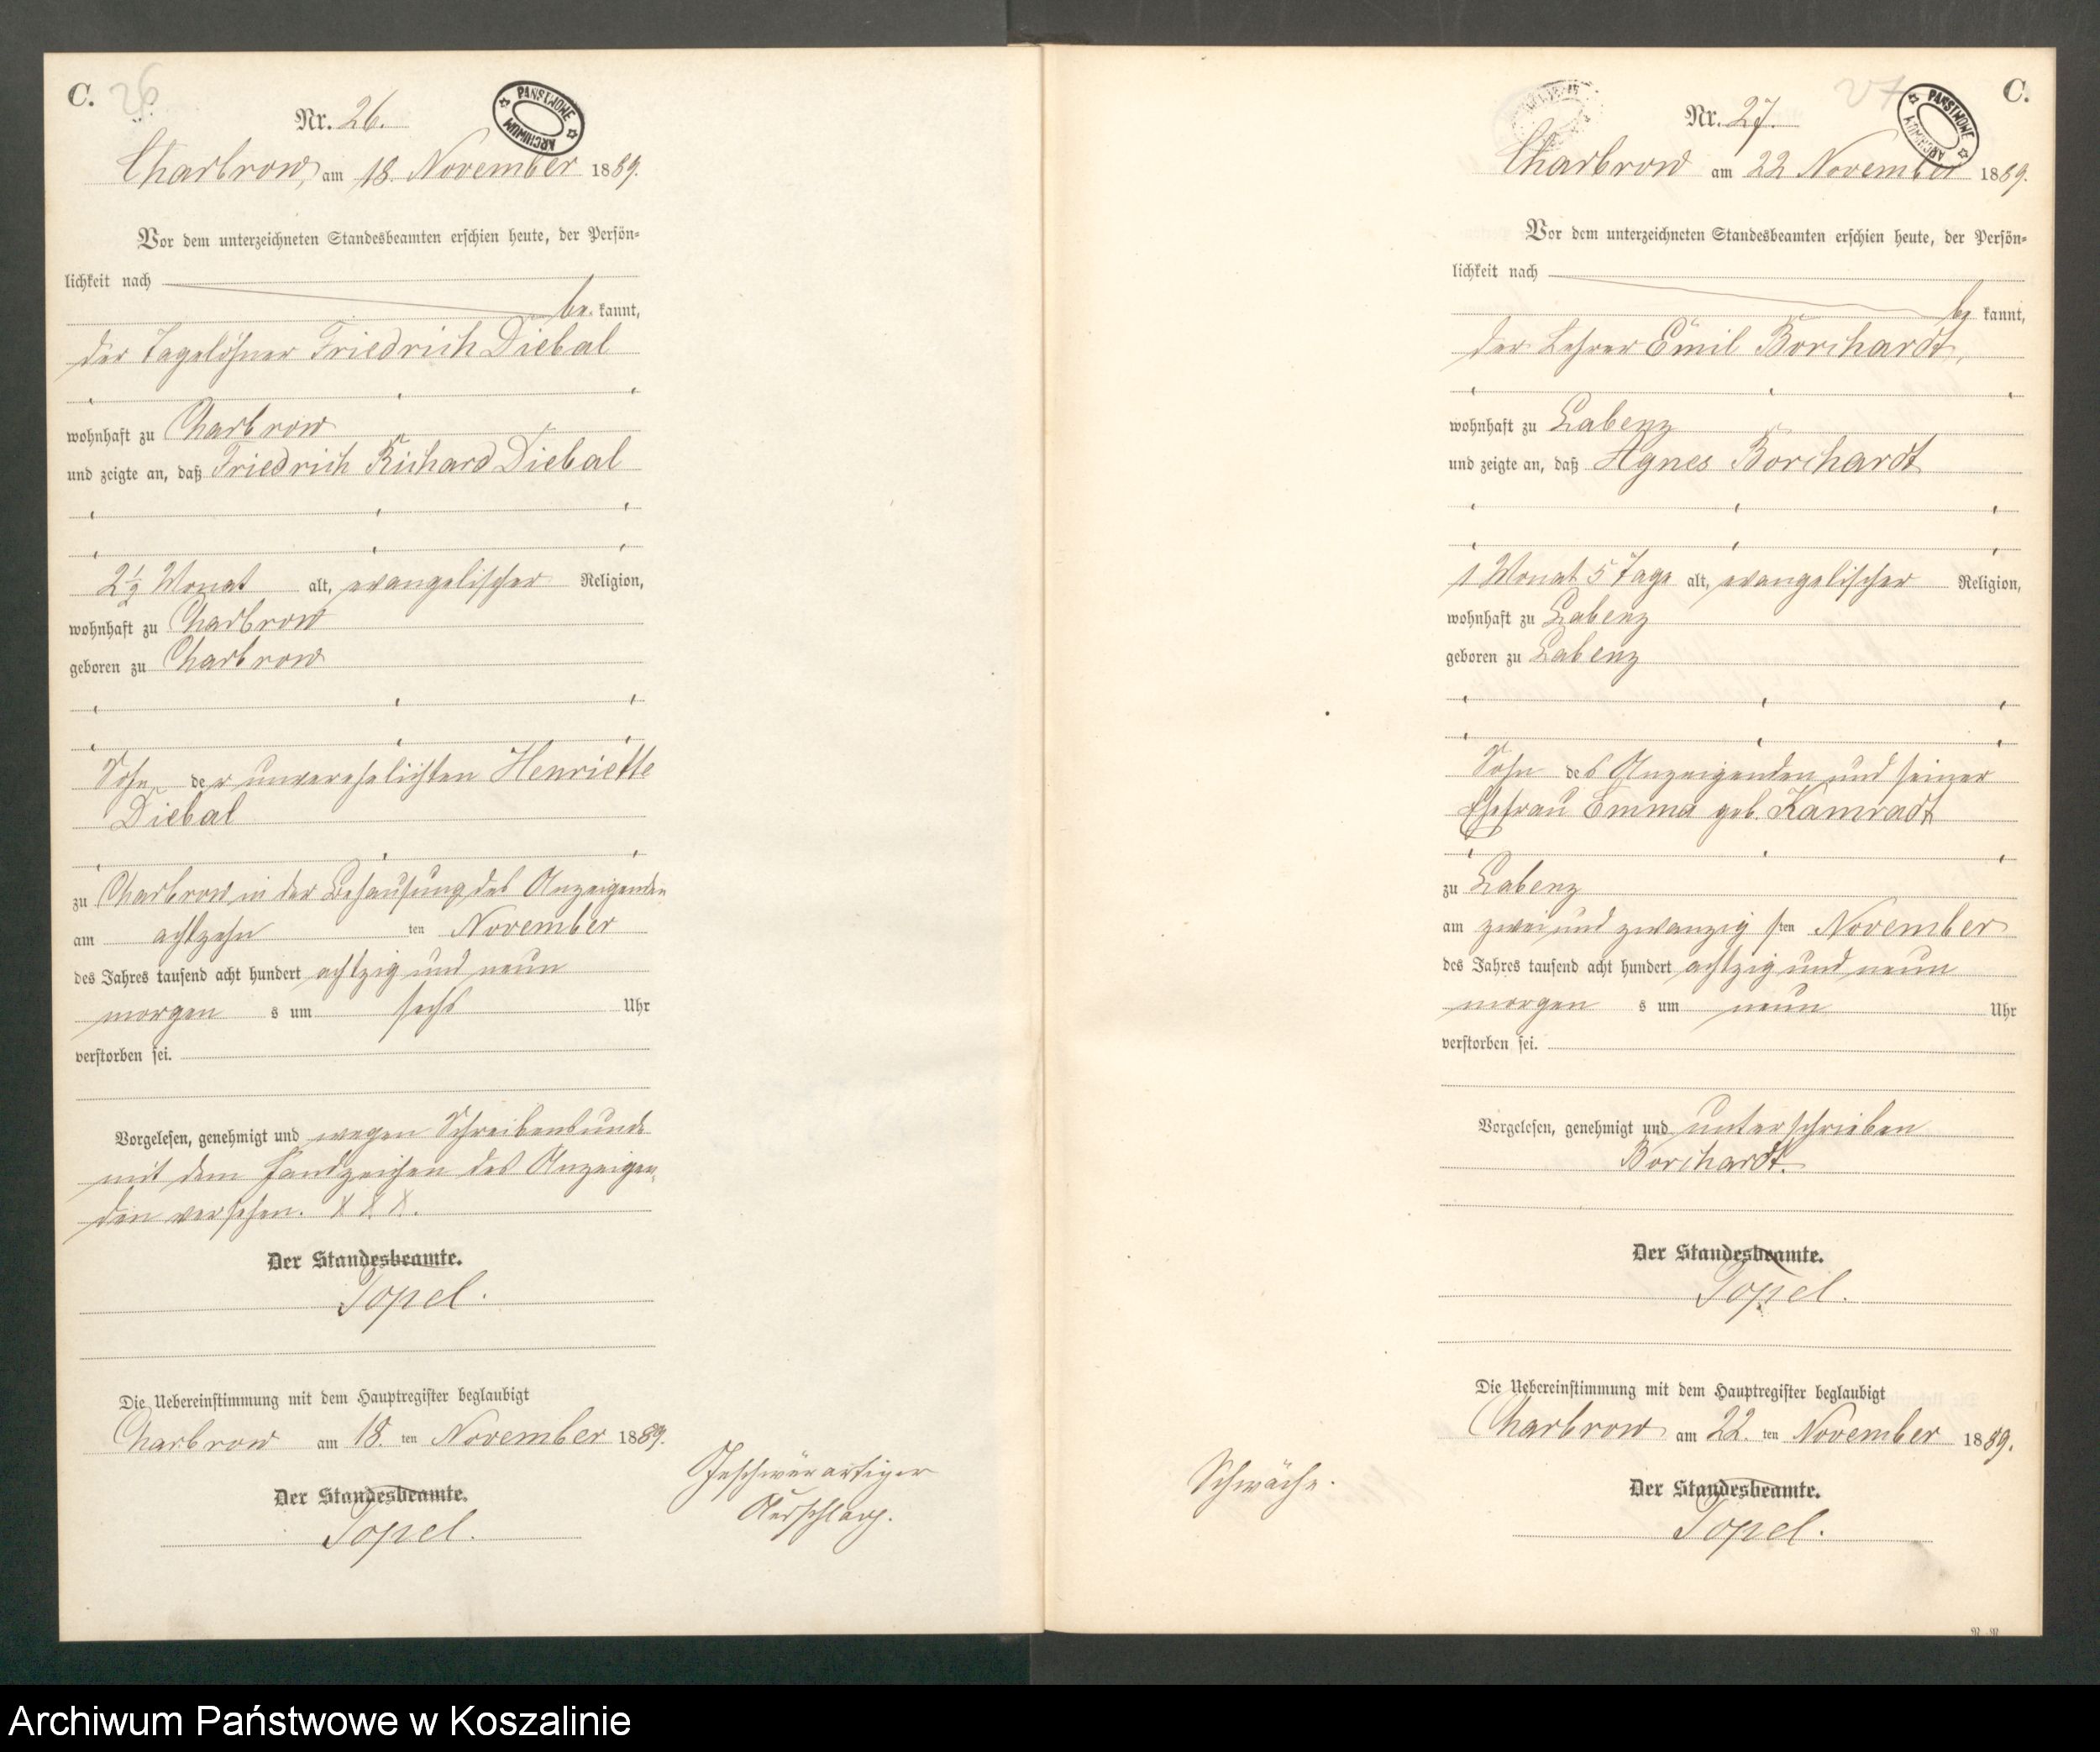 C. 26
PAŃSTWOWE ARCHIWUM
Nr. 26.
Charbrow, am 18. November 1889.
Vor dem unterzeichneten Standesbeamten erschien heute, der Persön-
lichkeit nach
be kannt,
der Tagelöhner Friedrich Diebal
wohnhaft zu Charbrow
und zeigte an, daß Friedrich Richard Diebal
2½ Monat alt, evangelischer Religion,
wohnhaft zu Charbrow
geboren zu Charbrow
Sohn der unverehelichten Henriette
Diebal
zu Charbrow in der Behausung des Anzeigenden
am achtzehn ten November
des Jahres tausend acht hundert achtzig und neun
morgen s um sechs Uhr
verstorben sei.
Vorgelesen, genehmigt und wegen Schreibensunde
mit dem Handzeichen des Anzeigen,
den versehen. X X X.
Der Standesbeamte.
Topel.
Die Uebereinstimmung mit dem Hauptregister beglaubigt
Charbrow am 18. ten November 1889.
Der Standesbeamte.
Topel.
Geschwürartiger
Ausschlag.
27 C.
PAŃSTWOWE ARCHIWUM
Nr. 27.
Charbrow am 22 November 1889.
Vor dem unterzeichneten Standesbeamten erschien heute, der Persön-
lichkeit nach
be kannt,
der Lehrer Emil Borchardt,
wohnhaft zu Labenz
und zeigte an, daß Agnes Borchardt
1 Monat 5 Tage alt, evangelischer Religion,
wohnhaft zu Labenz
geboren zu Labenz
Sohn des Anzeigenden und seiner
Ehefrau Emma geb. Kamradt
zu Labenz
am zwei und zwanzig sten November
des Jahres tausend acht hundert achtzig und neun
morgen s um neun Uhr
verstorben sei.
Vorgelesen, genehmigt und unterschrieben
Borchardt.
Der Standesbeamte.
Topel.
Die Uebereinstimmung mit dem Hauptregister beglaubigt
Charbrow am 22. ten November 1889.
Der Standesbeamte.
Topel.
Schwäche.
Archiwum Państwowe w Koszalinie